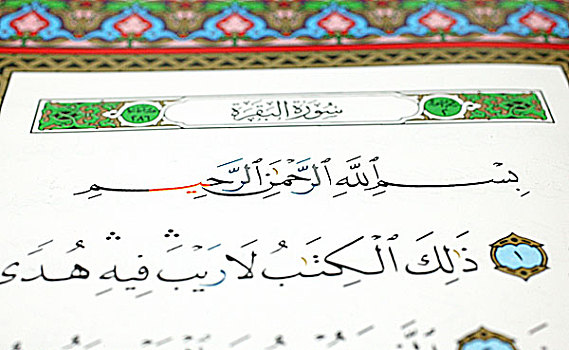 سُورَةُ البَقَرَةِ
بِسْمِ ٱللَّهِ ٱلرَّحْمَٰنِ ٱلرَّحِيمِ
١ ذَٰلِكَ ٱلْكِتَٰبُ لَا رَيْبَ ۛ فِيهِ ۛ هُدًى